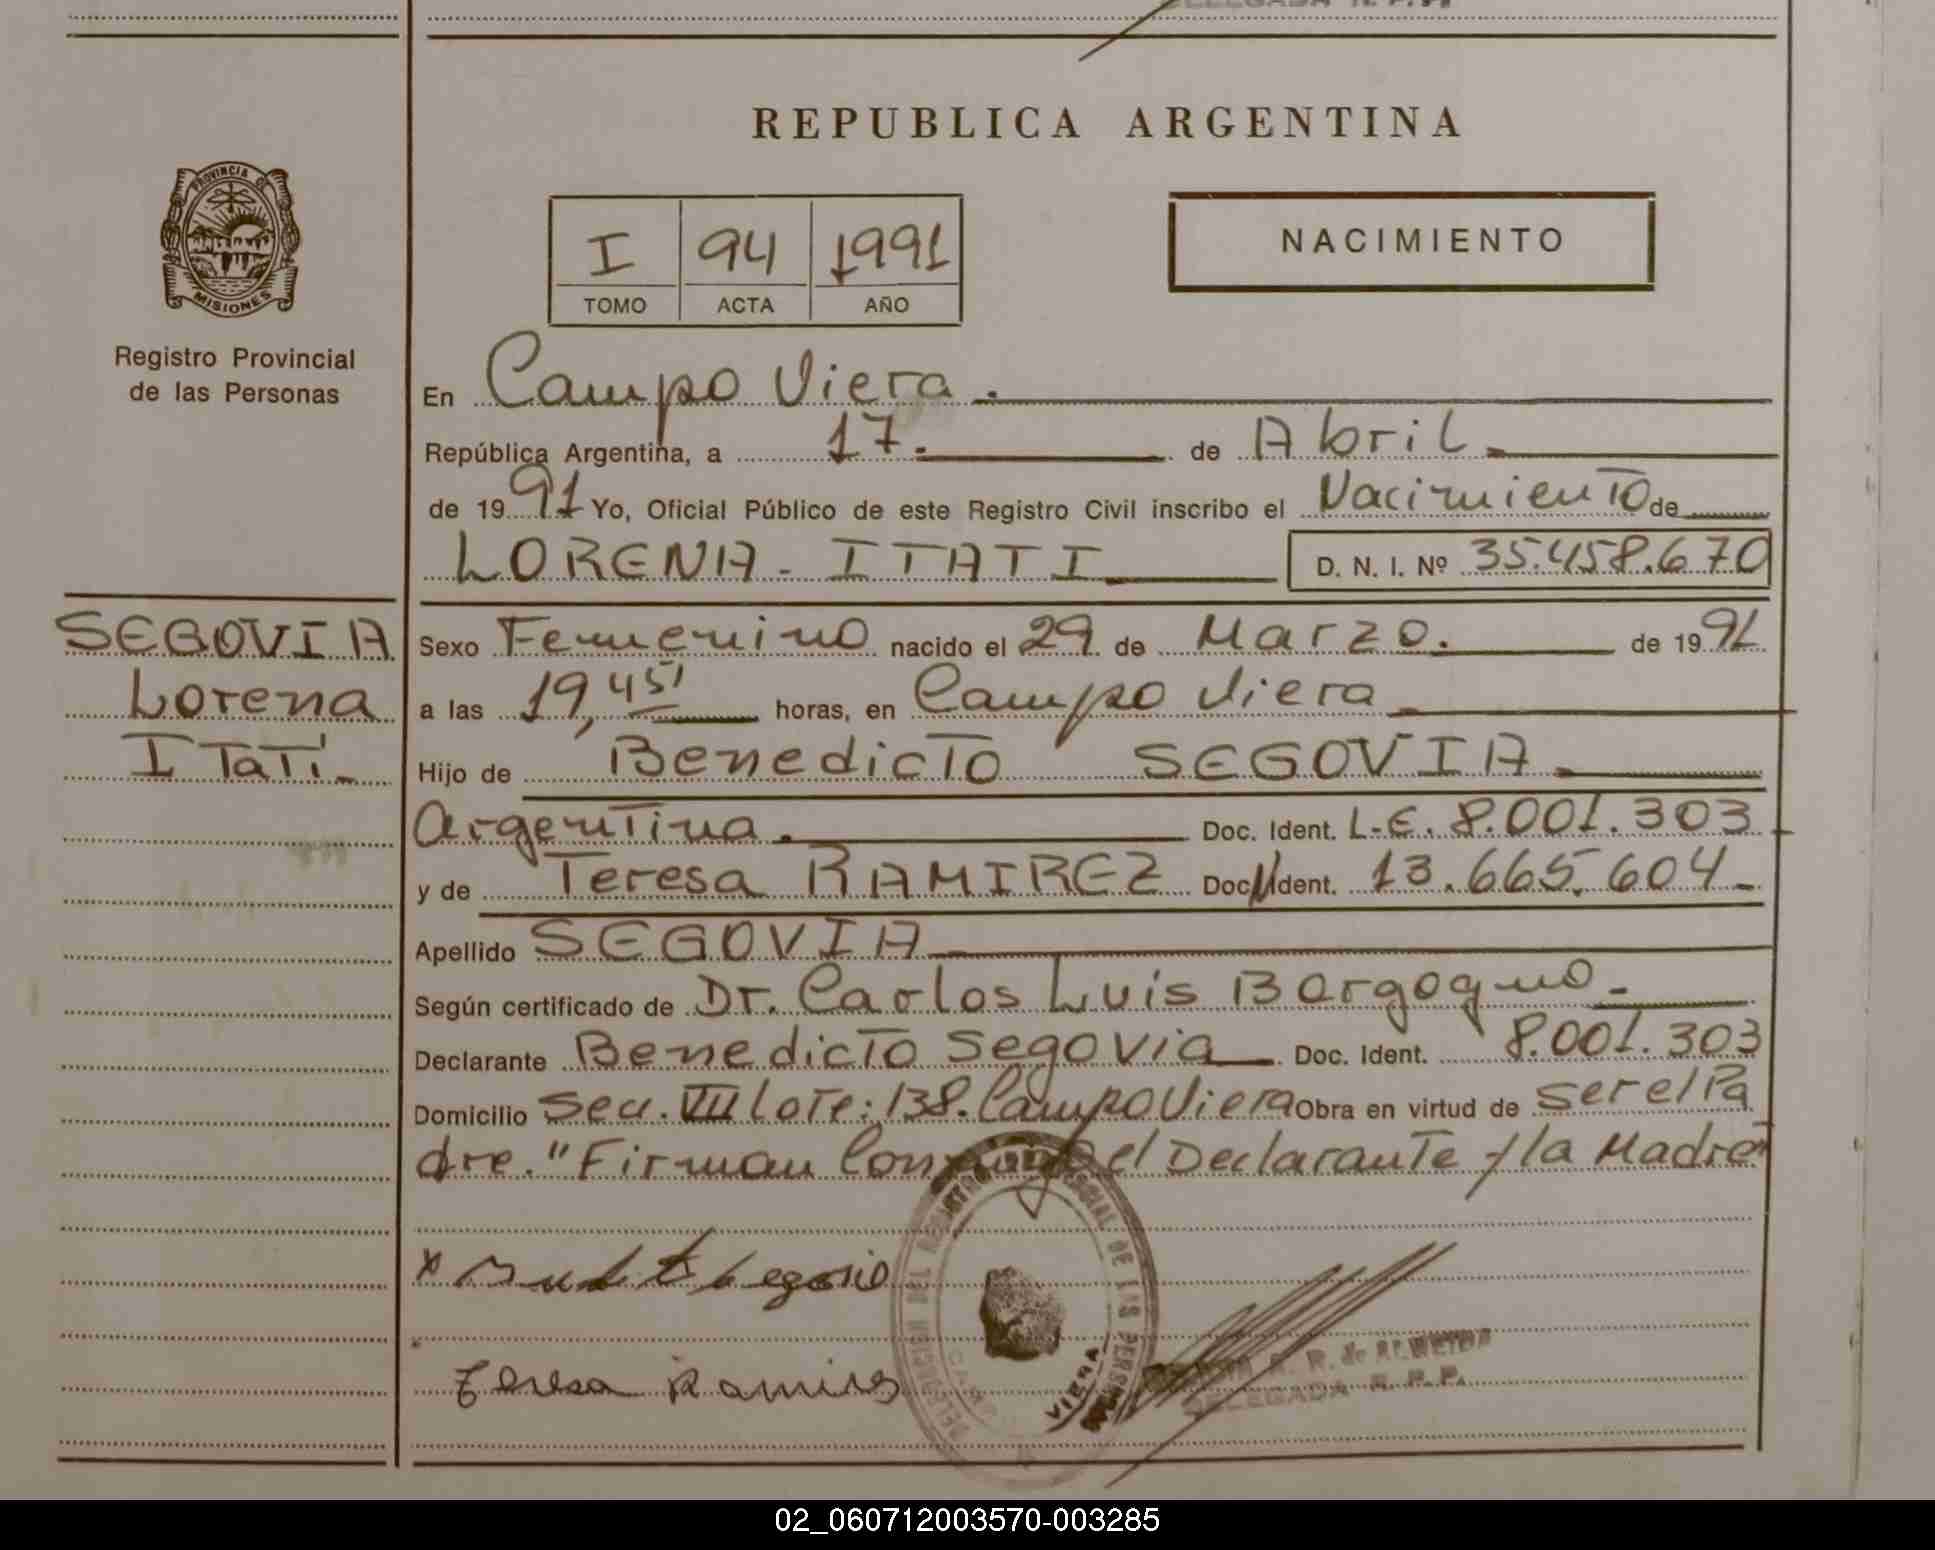 DELEGADA R.P.P.
REPUBLICA ARGENTINA
PROVINCIA DE
MISIONES
Registro Provincial
de las Personas
I 94 1991
TOMO ACTA AÑO
NACIMIENTO
En Campo Viera.
República Argentina, a 17. de Abril
de 1991 Yo, Oficial Público de este Registro Civil inscribo el Nacimiento de
LORENA - ITATI D. N. I. Nº 35.458.670
SEGOVIA
Lorena
ITatí
Sexo Femenino nacido el 29 de Marzo. de 1991
a las 19,45 horas, en Campo Viera
Hijo de Benedicto SEGOVIA
Argentina. Doc. Ident. L.E. 8.001.303
y de Teresa RAMIREZ Doc. Ident. 13.665.604
Apellido SEGOVIA
Según certificado de Dr. Carlos Luis Borgogno.
Declarante Benedicto Segovia Doc. Ident. 8.001.303
Domicilio Secc. VIII Lote: 138. Campo Viera Obra en virtud de ser el Pa
dre. "Firman Conmigo el Declarante y la Madre"
x Segovia
Teresa Ramires
DELEGACION DEL REGISTRO PROVINCIAL DE LAS PERSONAS
CAMPO VIERA
R. de ALMEIDA
DELEGADA R.P.P.
02_060712003570-003285